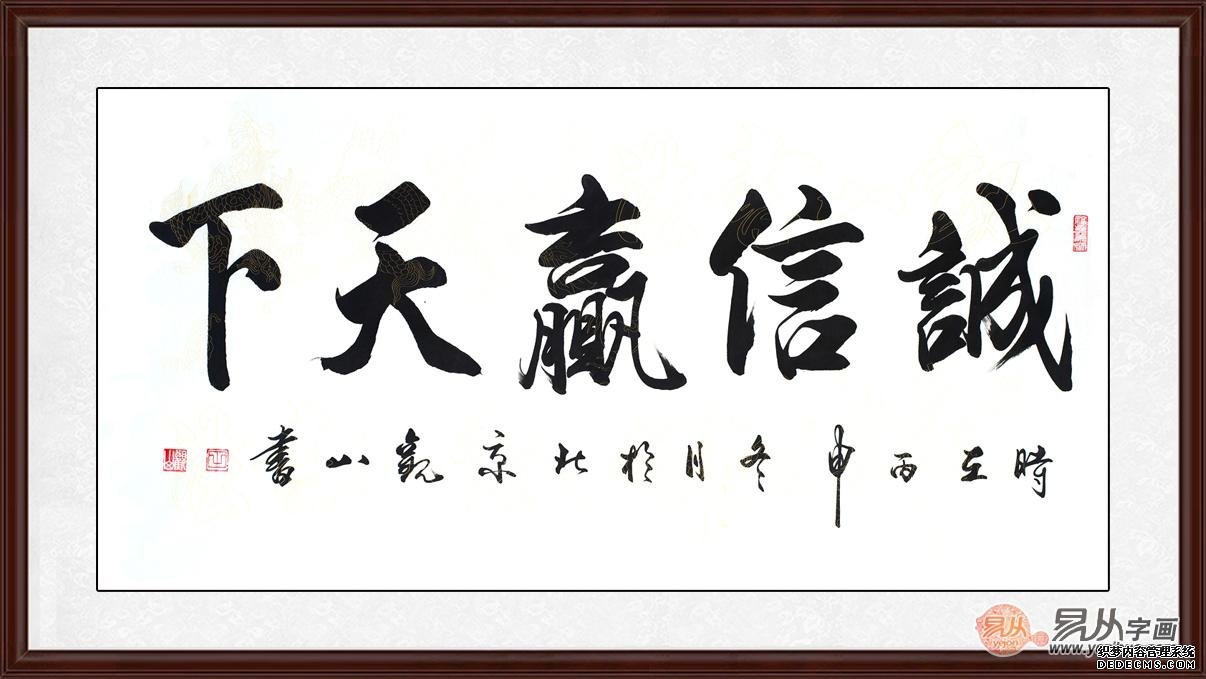 誠信贏天下
時在丙申冬月於北京觀山書
易从字画
yejon
织梦内容管理系统
DEDECMS.COM